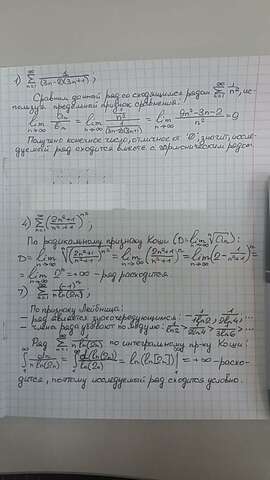 1) ∑_{n=1}^{∞} 1/((3n-2)(3n+1)),
Сравним данной ряд со сходящимся рядом ∑_{n=1}^{∞} 1/n², ис-
пользуя предельной признак сравнения:
lim_{n→∞} bn/an = lim_{n→∞} (1/n²)/(1/((3n-2)(3n+1))) = lim_{n→∞} (9n²-3n-2)/n² = 9
Получено конечное число, отличное от "0", значит, иссле-
дуемой ряд сходится вместе с гармоническим рядом.
4) ∑_{n=1}^{∞} ((2n²+1)/(n²+1))^{n²},
По радикальному признаку Коши (D = lim_{n→∞} ⁿ√(an)):
D = lim_{n→∞} ⁿ√(((2n²+1)/(n²+1))^{n²}) = lim_{n→∞} ((2n²+1)/(n²+1))^n = lim_{n→∞} (2 - 1/(n²+1))^n =
= lim_{n→∞} 2^n = +∞ - ряд расходится.
7) ∑_{n=1}^{∞} (-1)^n/(n ln(2n)),
По признаку Лейбница:
– ряд является знакочередующимся: -1/(1 ln2), 1/(2 ln4), ...
– члены ряда убывают по модулю: 1/ln2 > 1/(2 ln4) > 1/(3 ln6) > ...
Ряд ∑_{n=1}^{∞} 1/(n ln(2n)) по интегральному пр-ку Коши:
∫_1^∞ dn/(n ln(2n)) = ∫_1^∞ d(ln(2n))/ln(2n) = ln(ln[2n])|_1^∞ = +∞ - расхо-
дится, поэтому исследуемый ряд сходится условно.